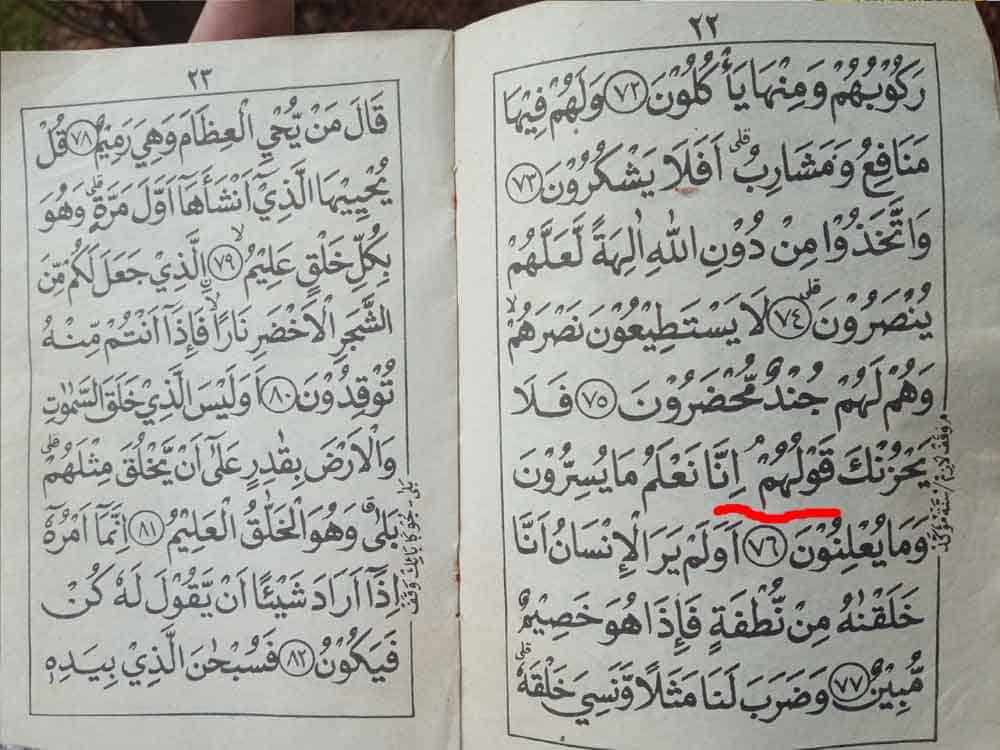 ٢٢
رَكُوْبُهُمْ وَمِنْهَا يَأْكُلُوْنَ ﴿٧٢﴾ وَلَهُمْ فِيْهَا
مَنَافِعُ وَمَشَارِبُ ۗ اَفَلَا يَشْكُرُوْنَ ﴿٧٣﴾
وَاتَّخَذُوْا مِنْ دُوْنِ اللّٰهِ اٰلِهَةً لَّعَلَّهُمْ
يُنْصَرُوْنَ ۗ ﴿٧٤﴾ لَا يَسْتَطِيْعُوْنَ نَصْرَهُمْ ۙ
وَهُمْ لَهُمْ جُنْدٌ مُّحْضَرُوْنَ ﴿٧٥﴾ فَلَا
يَحْزُنْكَ قَوْلُهُمْ ۘ اِنَّا نَعْلَمُ مَا يُسِرُّوْنَ
وَمَا يُعْلِنُوْنَ ﴿٧٦﴾ اَوَلَمْ يَرَ الْاِنْسَانُ اَنَّا
خَلَقْنٰهُ مِنْ نُّطْفَةٍ فَاِذَا هُوَ خَصِيْمٌ
مُّبِيْنٌ ﴿٧٧﴾ وَضَرَبَ لَنَا مَثَلًا وَّنَسِيَ خَلْقَهٗ ۗ
م وقف لازم
٢٣
قَالَ مَنْ يُّحْيِ الْعِظَامَ وَهِيَ رَمِيْمٌ ﴿٧٨﴾ قُلْ
يُحْيِيْهَا الَّذِيْٓ اَنْشَاَهَآ اَوَّلَ مَرَّةٍ ۗ وَهُوَ
بِكُلِّ خَلْقٍ عَلِيْمٌ ۙ ﴿٧٩﴾ الَّذِيْ جَعَلَ لَكُمْ مِّنَ
الشَّجَرِ الْاَخْضَرِ نَارًا ۙ فَاِذَآ اَنْتُمْ مِّنْهُ
تُوْقِدُوْنَ ﴿٨٠﴾ اَوَلَيْسَ الَّذِيْ خَلَقَ السَّمٰوٰتِ
وَالْاَرْضَ بِقٰدِرٍ عَلٰٓى اَنْ يَّخْلُقَ مِثْلَهُمْ ۗ
بَلٰى ۗ وَهُوَ الْخَلّٰقُ الْعَلِيْمُ ﴿٨١﴾ اِنَّمَآ اَمْرُهٗٓ
اِذَآ اَرَادَ شَيْئًا اَنْ يَّقُوْلَ لَهٗ كُنْ
فَيَكُوْنُ ﴿٨٢﴾ فَسُبْحٰنَ الَّذِيْ بِيَدِهٖ